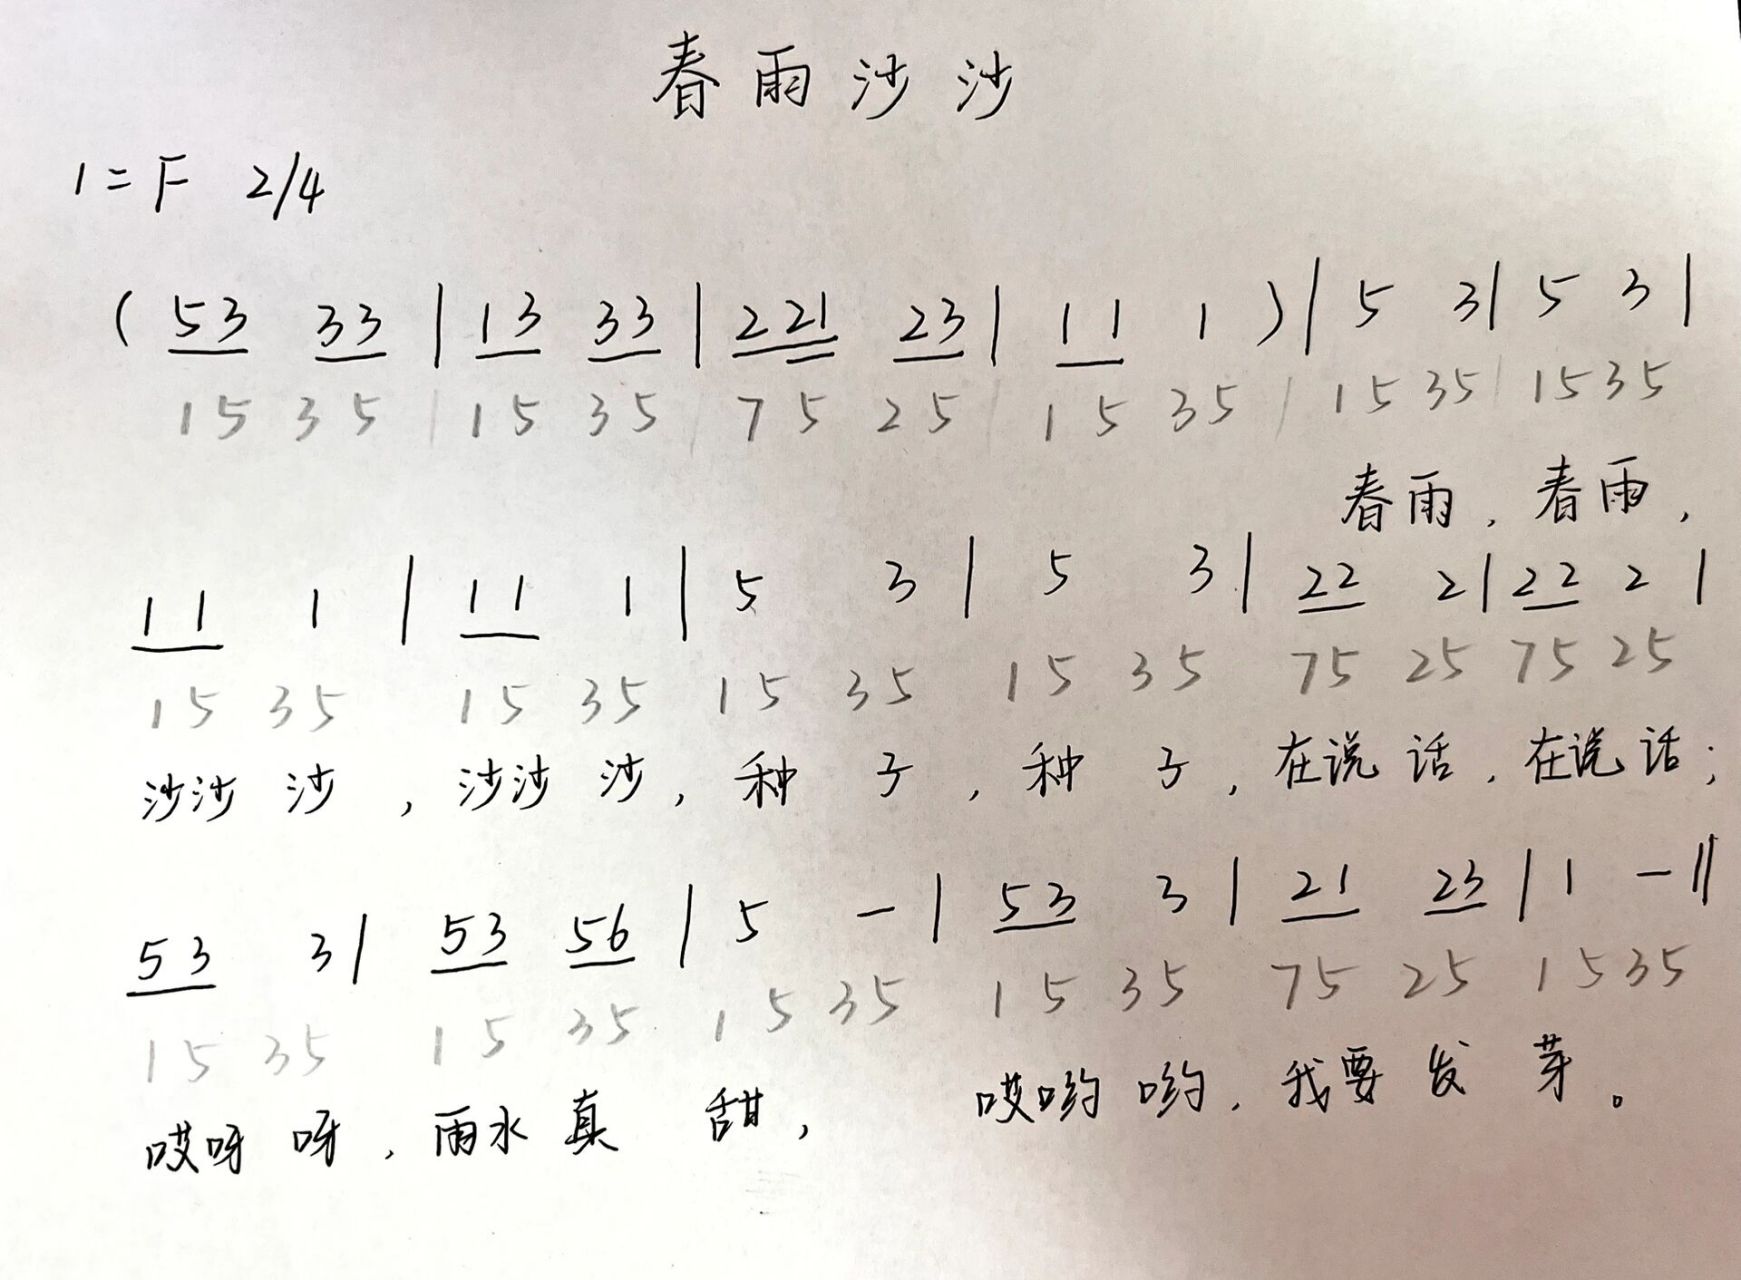 春雨沙沙
1=F 2/4
( 53 33 | 13 33 | 221 23 | 11 1 ) | 5 3 | 5 3 |
15 35 | 15 35 | 75 25 | 15 35 | 15 35 | 15 35
春雨，春雨，
11 1 | 11 1 | 5 3 | 5 3 | 22 2 | 22 2 |
15 35 15 35 15 35 15 35 75 25 75 25
沙沙沙，沙沙沙，种子，种子，在说话，在说话；
53 3 | 53 56 | 5 - | 53 3 | 21 23 | 1 - ||
15 35 15 35 15 35 15 35 75 25 15 35
哎呀呀，雨水真甜，哎哟哟，我要发芽。